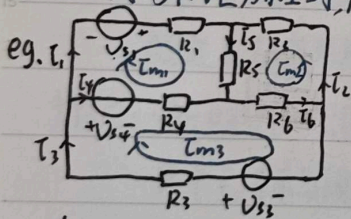 eg. I₁ - Us₁ + R₁ I₅ R₂
Im₁ R₅ Im₂ I₂
I₄ + Us₄ - R₄ R₆ I₆
I₃ Im₃
R₃ + Us₃ -